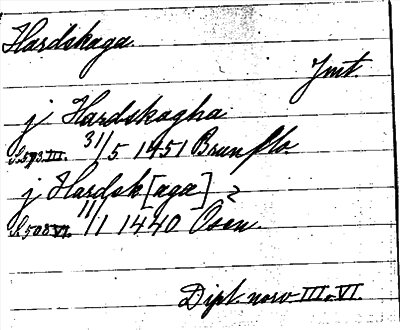 Hardskaga.
Jmt
j Hardskogha
S.593.III. 31/5 1451 Brunflo.
j Hardsk[aga] ?
S.508 VI. 11/1 1440 Osen.
Dipl. norv III. VI.